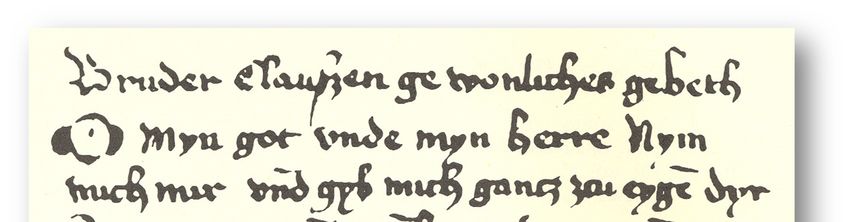 Bruder Claußen gewonliches gebeth
O Myn got vnde myn herre Nym
mich mir vnd gyb mich gantz zcu eygē dyr